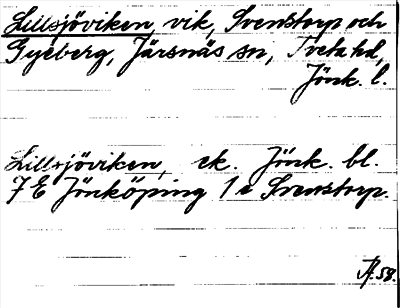 Lillsjöviken, vik, Svenstorp och
Gyeberg, Järsnäs sn, Tveta hd,
Jönk. l.
Lillsjöviken, ek. Jönk. bl.
7 E Jönköping 1 e Svenstorp.
A. 58.